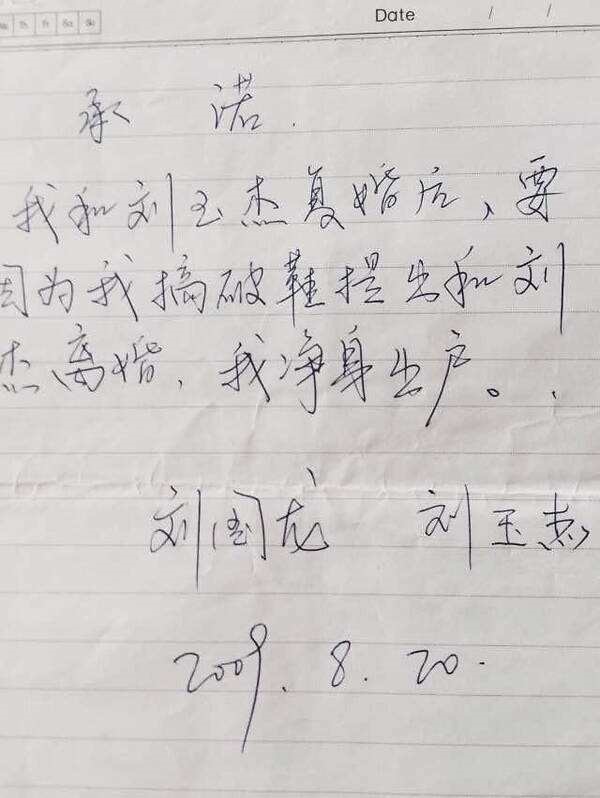 Th Fr Sa Su
Date / /
承 诺.
我和刘玉杰复婚后、要
因为我搞破鞋提出和刘
杰离婚、我净身出户。.
刘国龙 刘玉杰
2009.8.20.